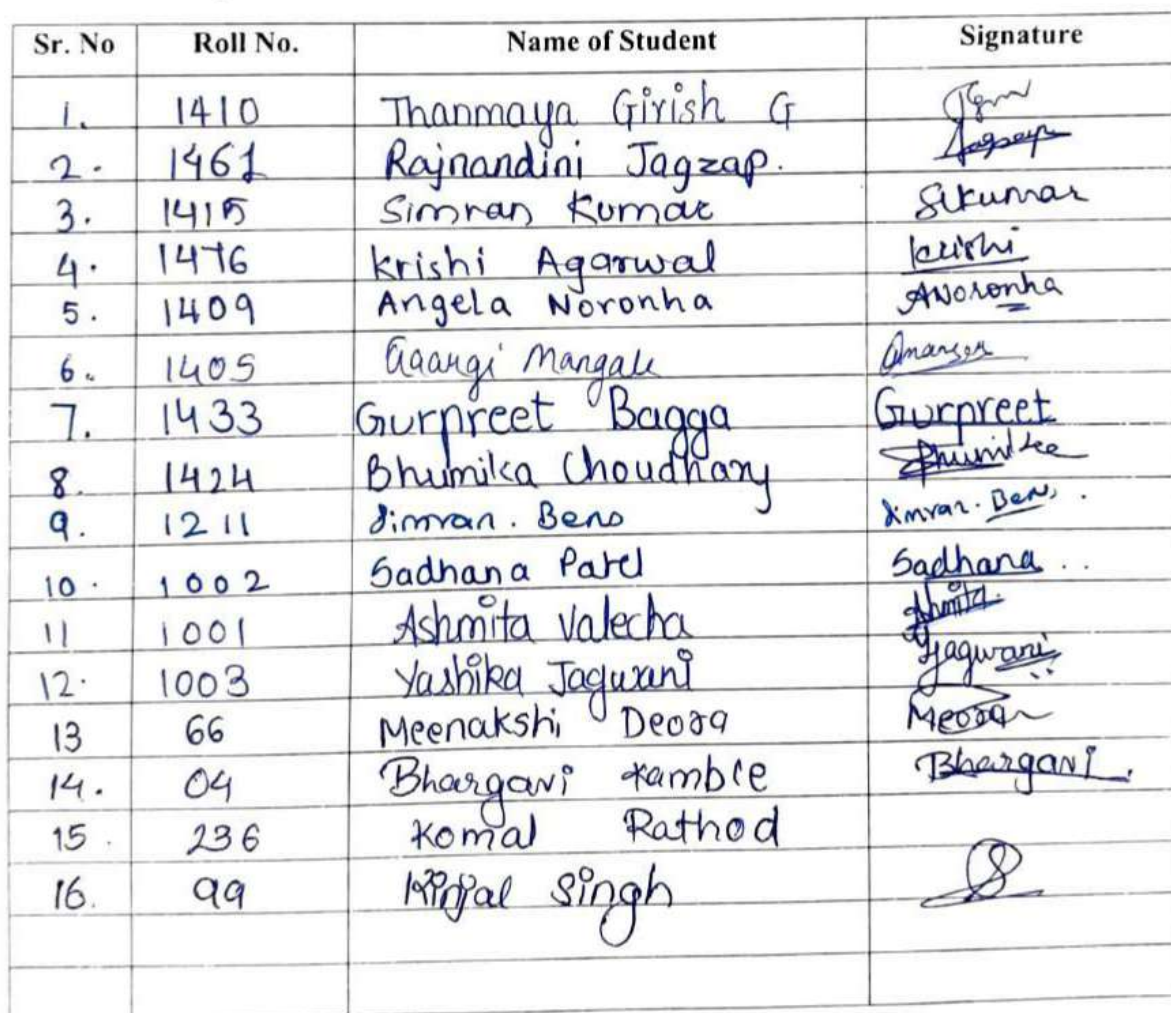 Sr. No Roll No. Name of Student Signature
1. 1410 Thanmaya Girish G
2. 1461 Rajnandini Jagzap.
3. 1415 Simran Kumar Skumar
4. 1476 Krishi Agarwal Krishi
5. 1409 Angela Noronha ANoronha
6. 1405 Aaargi Mangale
7. 1433 Gurpreet Bagga Gurpreet
8. 1424 Bhumika Choudhary Bhumika
9. 1211 Simran. Bens Simran. Bens.
10. 1002 Sadhana Patel Sadhana ..
11 1001 Ashmita Valecha Ashmita.
12. 1003 Yashika Jagwani YJagwani
13 66 Meenakshi Deora Meora
14. 04 Bhargavi Kamble Bhargavi.
15. 236 Komal Rathod
16. 99 Kinjal Singh